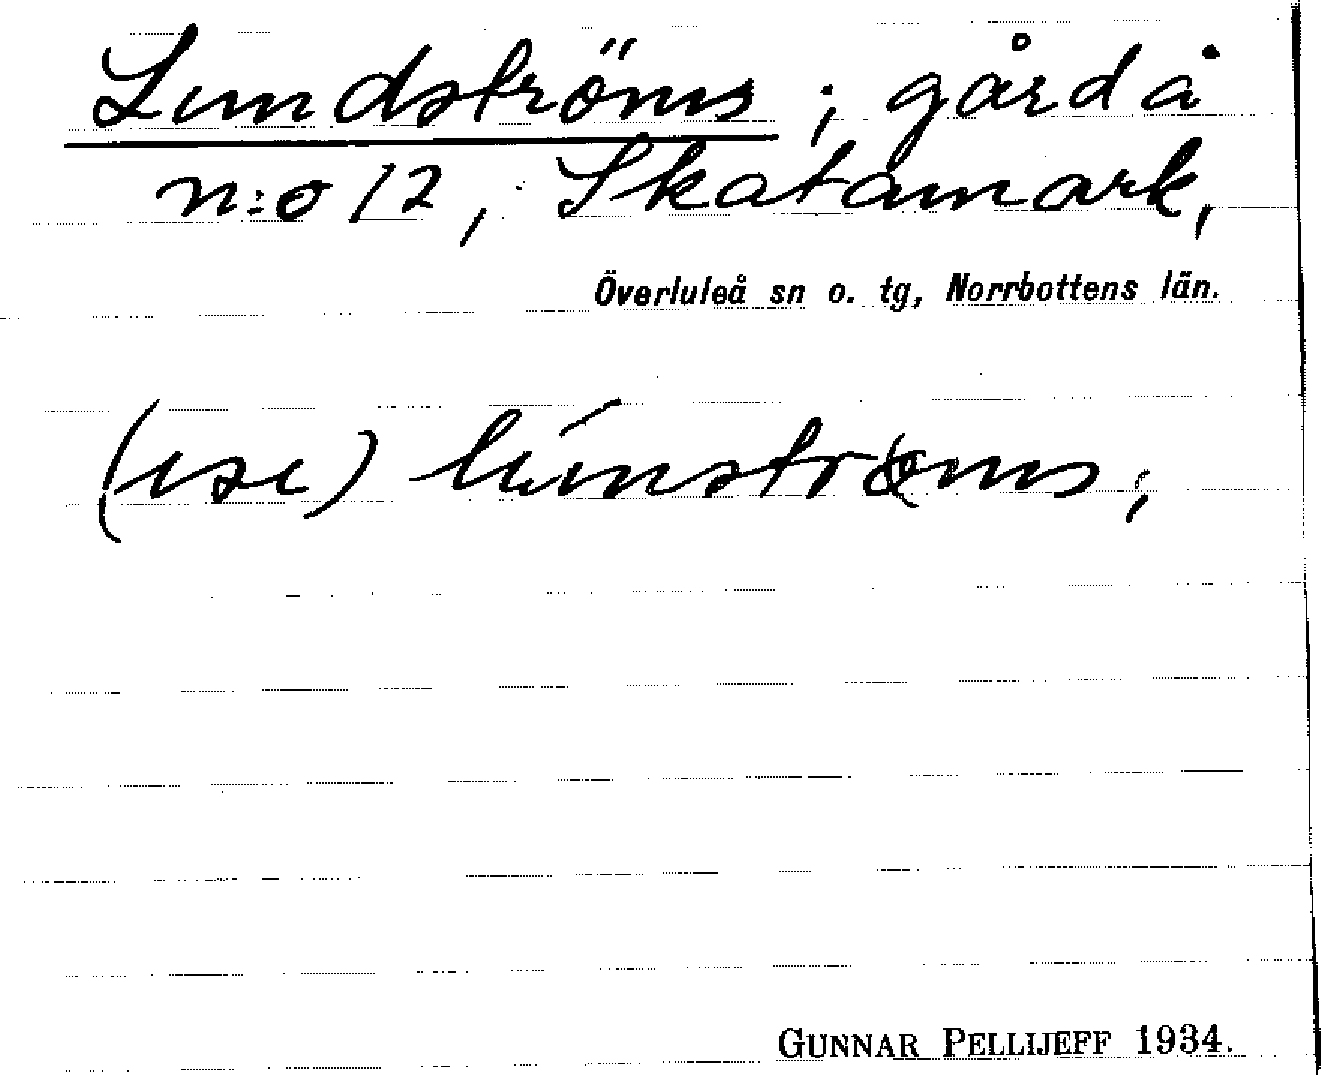 Lundströms; gård å
n:o 12, Skatamark,
Överluleå sn o. tg, Norrbottens län.
(use) lúnstroms;
GUNNAR PELLIJEFF 1934.